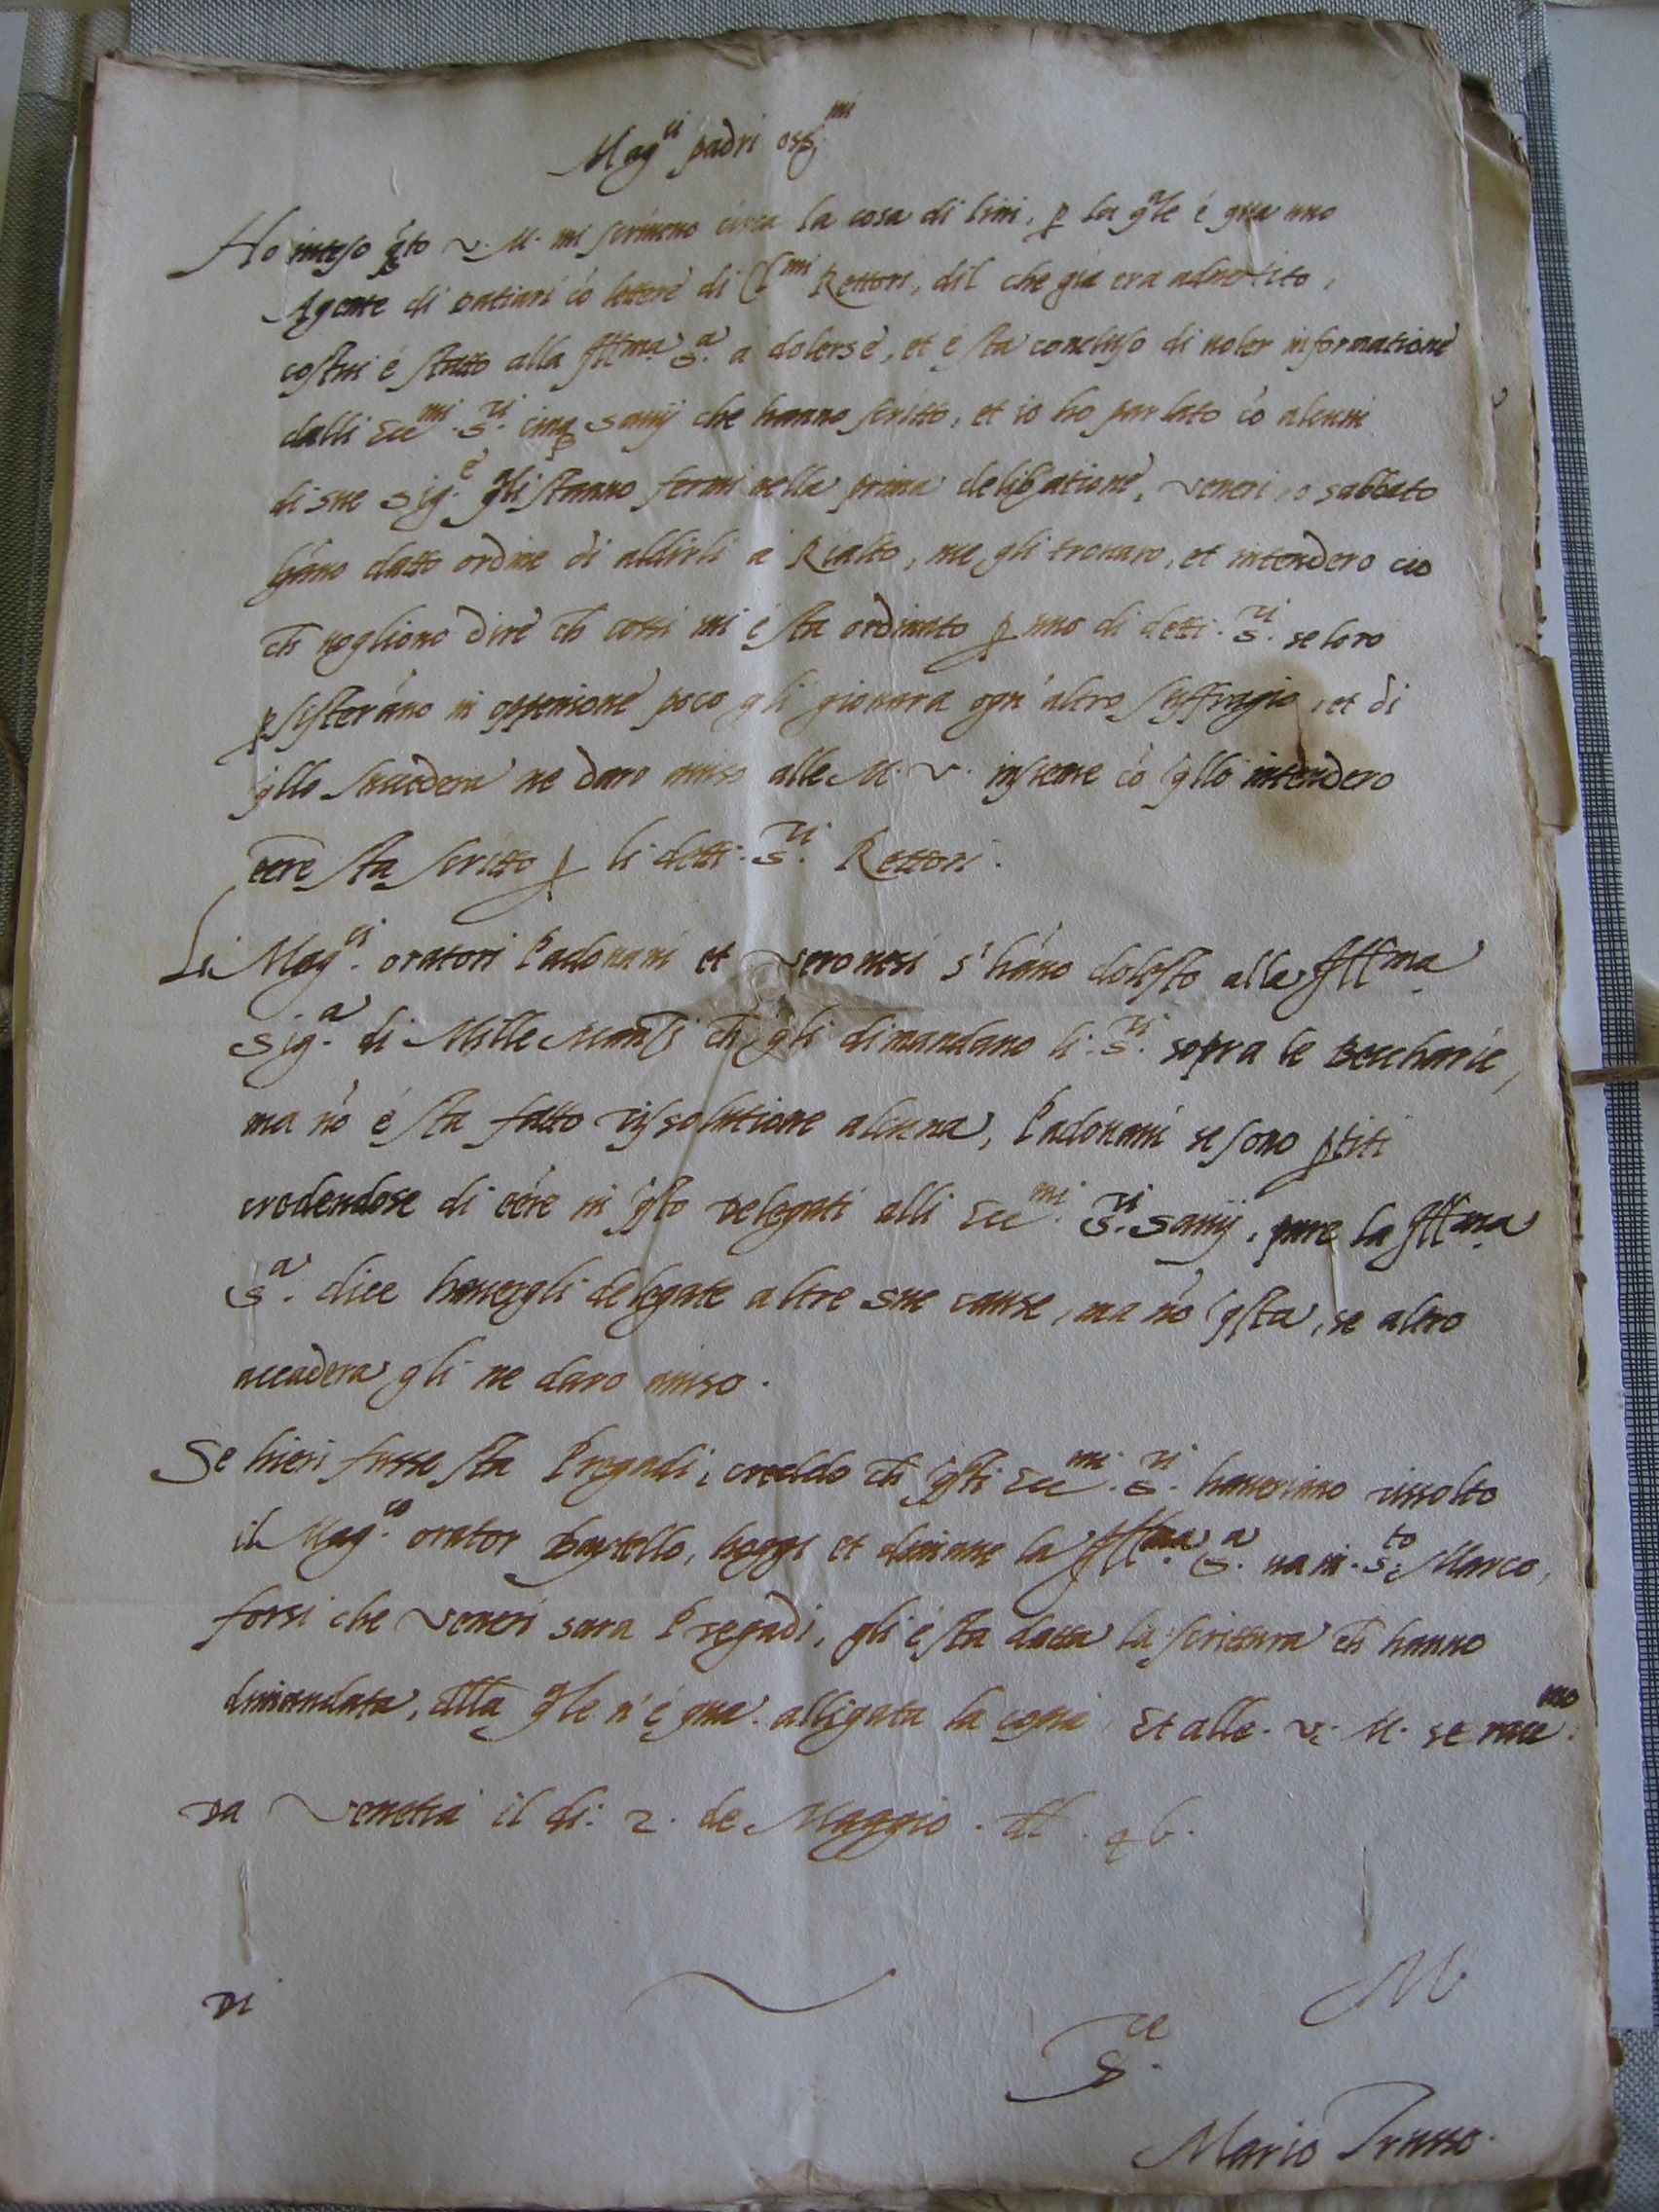 Mag.ci padri oss.mi
Ho inteso q̃to V. M. mi scriueno circa la cosa di lini, p la q̃le é qua uno
Agente di Datiari cõ lettere di Cl.mi Rettori, dil che gia era aduertito,
costui é statto alla Ill.ma S.a a dolerse, et é sta concluso di uoler informatione
dalli Ecc.mi S.ri cinq̃ Sauij che hanno scritto, et io ho parlato cõ alcuni
di sue Sig.e q̃li stanno fermi nella prima delibatione, Veneri o sabbato
hãno datto ordine di aldirli a Rialto, me gli trouaro, et intendero cio
ch̃ uogliono dire ch̃ cossi mi é sta ordinato p uno di detti S.ri se loro
psisterãno in oppenione poco gli giouara ogn'altro suffragio, et di
q̃llo succedera ne daro auiso alle M. V. insieme cõ q̃llo intendero
eẽre sta scritto p li detti S.ri Rettori.
Li Mag.ci oratori Padouani et Veronesi s'hãno dolesto alla Ill.ma
Sig.a di Mille ch̃ gli dimandano li S.ri sopra le Beccharie,
ma nõ é sta fatto rissolutione alcuna, Padouani se sono ptiti
credendose di eẽre in q̃sto Delegati alli Ecc.mi S.ri Sauij, pure la Ill.ma
S.a dice hauergli delegate altre sue cause, ma nõ q̃sta, se altro
accadera gli ne daro auiso.
Se hieri fusse sta Pregadi, credo ch̃ q̃sti Ecc.mi S.ri haueriano rissolto
il Mag.co orator, hoggi et dimane la Ill.ma S.a ua in S.to Marco,
forsi che Veneri sara Pregadi, gli é sta datta la scrittura ch̃ hanno
dimandata, dlla q̃le n'é qua alligata la copia, Et alle V. M. se racc.mo
Da Venetia il di 2. de Maggio. dl 46.
Di V. M.
S.ce
Mario